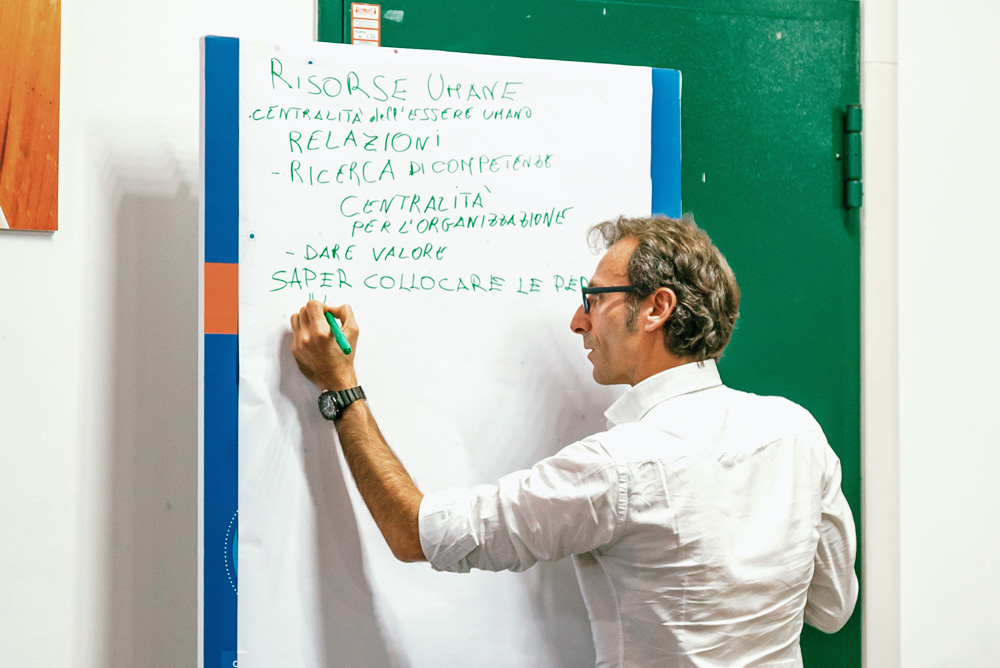 RISORSE UMANE
·CENTRALITÀ dell'ESSERE UMANO
RELAZIONI
-RICERCA DI COMPETENZE
CENTRALITÀ
PER L'ORGANIZZAZIONE
- DARE VALORE
SAPER COLLOCARE LE PER